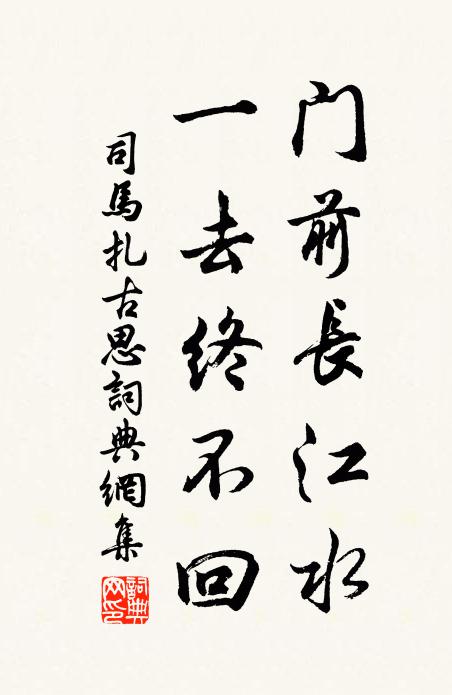 門前長江水
一去終不回
司馬扎古思詞典網集
詞典
网印